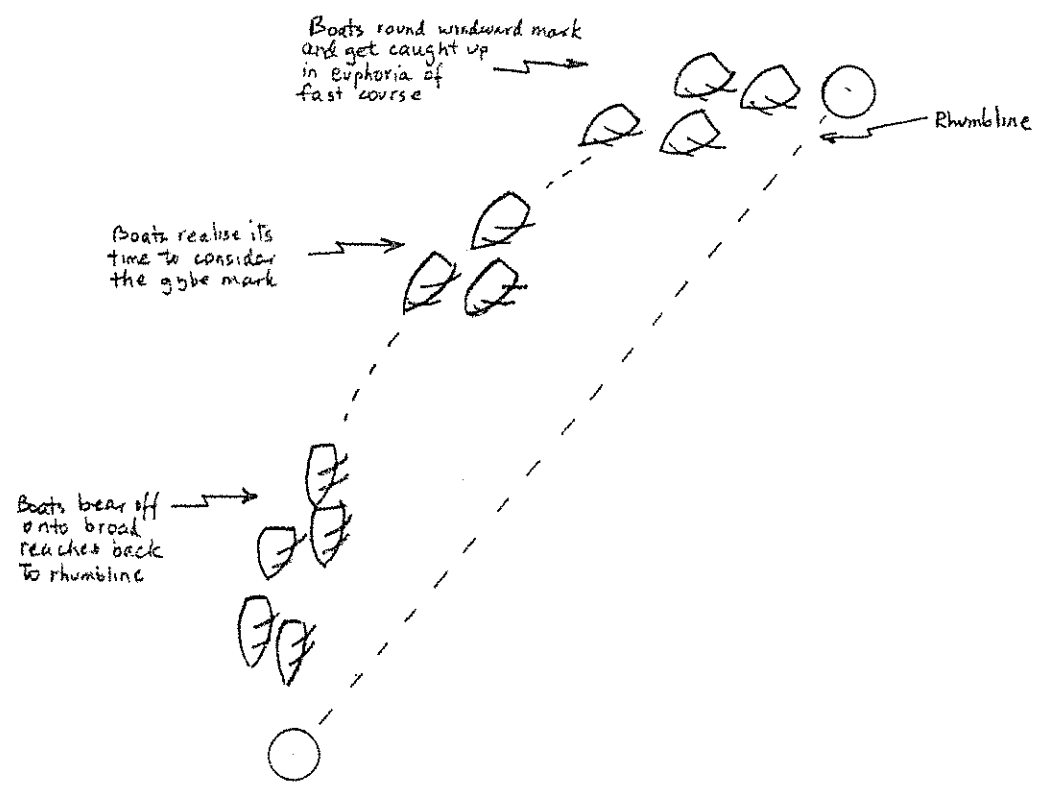 Boats round windward mark
and get caught up
in euphoria of
fast course
Rhumbline
Boats realise its
time to consider
the gybe mark
Boats bear off
onto broad
reaches back
to rhumbline